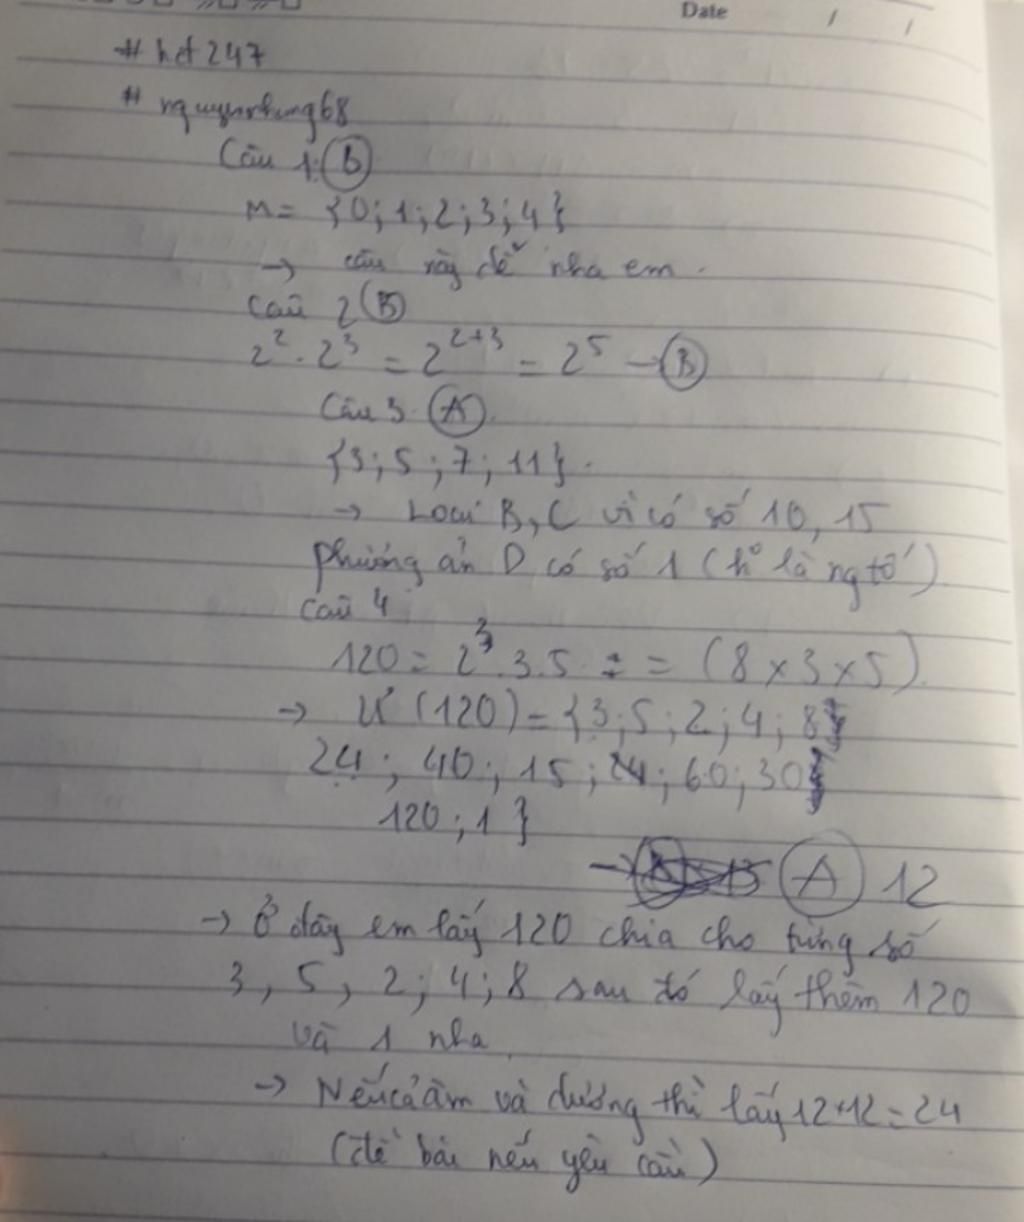 Date / /
# hdt 247
# nguyenhung68
Câu 1: B
M = {0; 1; 2; 3; 4}
→ câu này dễ nha em.
Câu 2 B
2² . 2³ = 2²⁺³ = 2⁵ → B
Câu 3. A.
{3; 5; 7; 11}.
→ Loại B, C vì có số 10, 15
phương án D có số 1 (k° là ng tố)
Câu 4
120 = 2³ . 3 . 5 = (8 x 3 x 5)
→ Ư (120) = {3; 5; 2; 4; 8
24; 40; 15; 24; 60; 30
120; 1}
→ A 12
→ Ở đây em lấy 120 chia cho từng số
3, 5, 2; 4; 8 sau đó lấy thêm 120
và 1 nha
→ Nếu cả âm và dương thì lấy 12+12 = 24
(đề bài nếu yêu cầu)